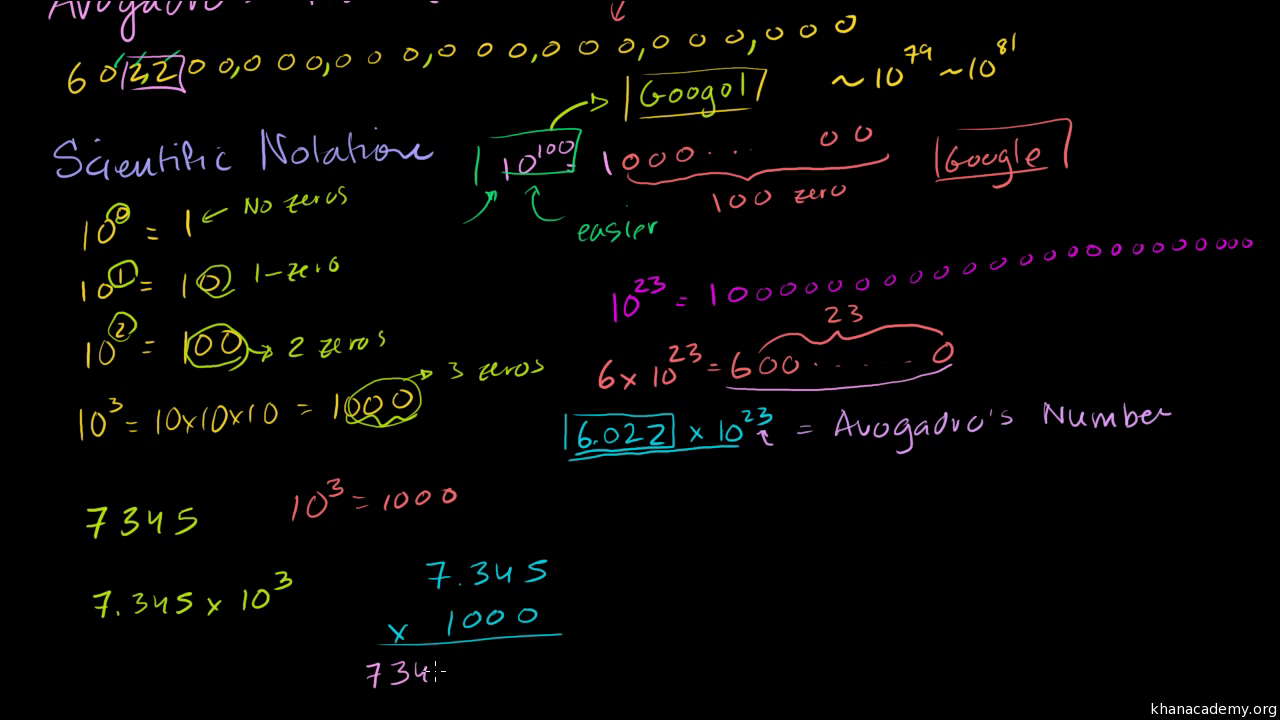 Avogadro's
6022 00,000,000,000,000,000,000
Googol
~10^79 ~10^81
Scientific Notation
10^100 = 1000... 00
Google
100 zero
easier
10^0 = 1 ← No zeros
10^1 = 10 1-zero
10^2 = 100 → 2 zeros
10^3 = 10x10x10 = 1000 → 3 zeros
10^23 = 100000000000000000000000
23
6 x 10^23 = 600..... 0
6.022 x 10^23 = Avogadro's Number
7345
10^3 = 1000
7.345 x 10^3
7.345
x 1000
734
khanacademy.org